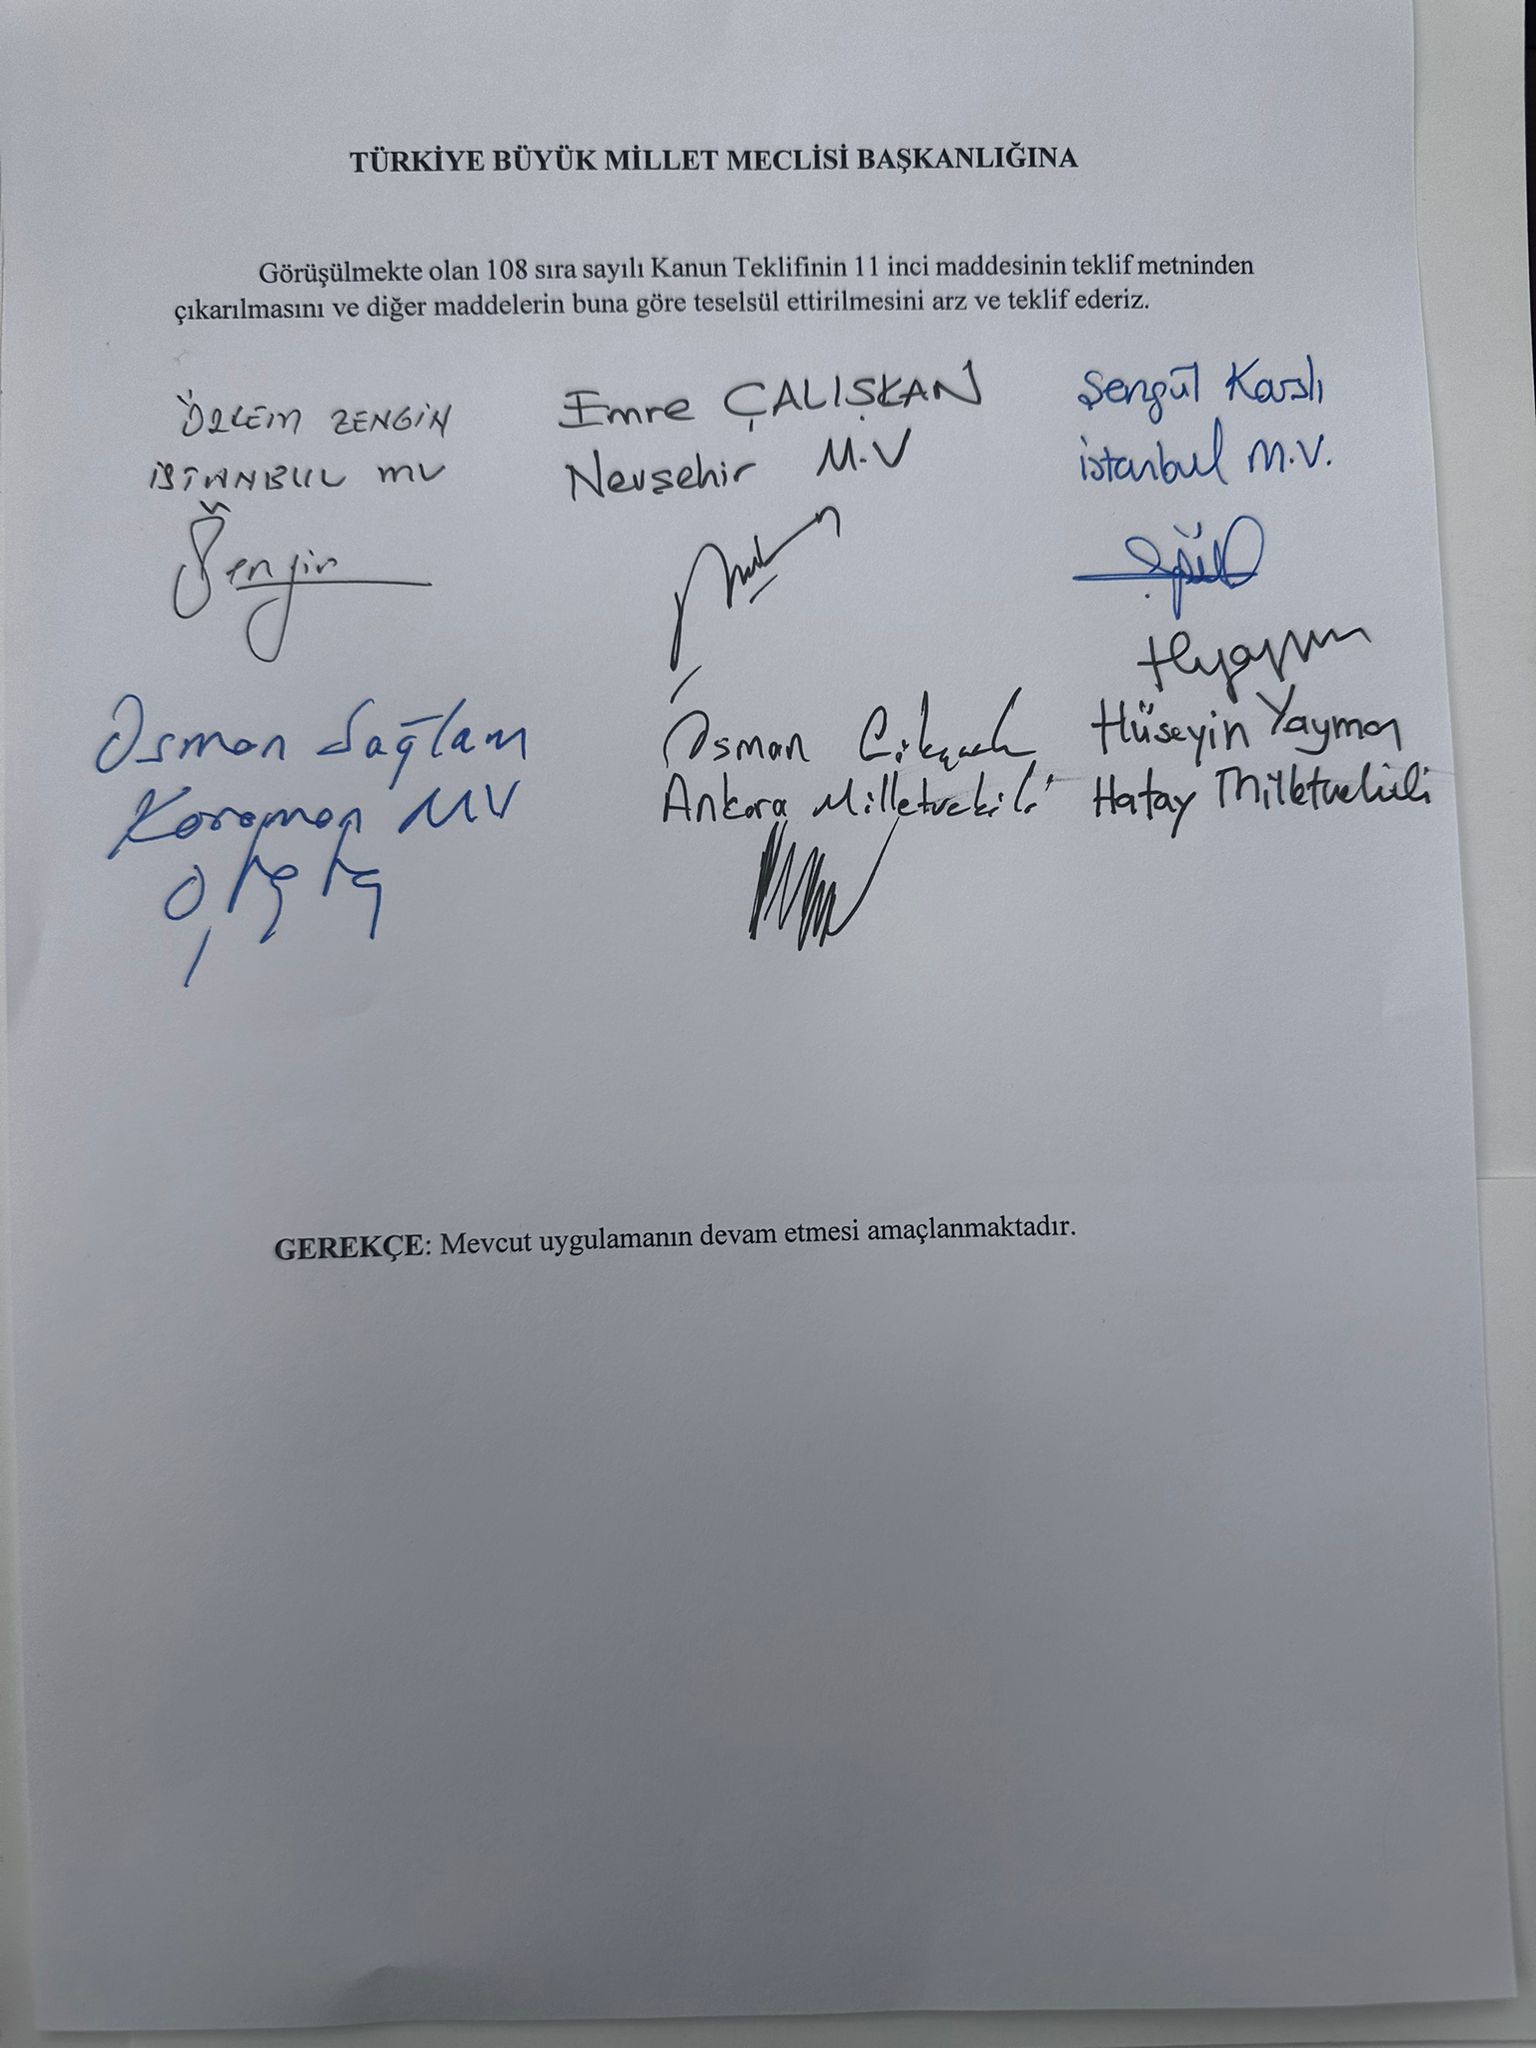 TÜRKİYE BÜYÜK MİLLET MECLİSİ BAŞKANLIĞINA
Görüşülmekte olan 108 sıra sayılı Kanun Teklifinin 11 inci maddesinin teklif metninden
çıkarılmasını ve diğer maddelerin buna göre teselsül ettirilmesini arz ve teklif ederiz.
ÖZLEM ZENGİN
İSTANBUL MV
Emre ÇALIŞKAN
Nevşehir M.V
Şengül Karslı
İstanbul M.V.
Zengin
Osman Sağlam
Karaman MV
Osman
Ankara Milletvekili
Hüseyin Yayman
Hatay Milletvekili
GEREKÇE: Mevcut uygulamanın devam etmesi amaçlanmaktadır.